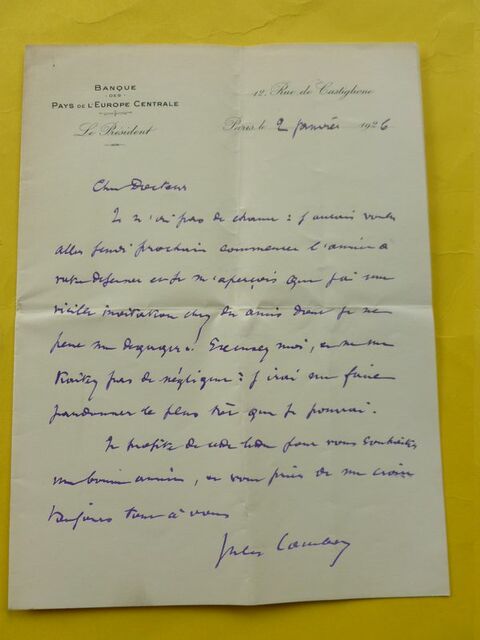 BANQUE
DES
PAYS DE L'EUROPE CENTRALE
Le Président
12, Rue de Castiglione
Paris le 2 janvier 1926
Cher Docteur
Je n'ai pas de chance : j'aurais voulu
aller jeudi prochain commencer l'année à
votre déjeuner et je m'aperçois que j'ai une
vieille invitation chez des amis dont je ne
peux me dégager. Excusez moi, et ne me
traitez pas de négligent : j'irai me faire
pardonner le plus tôt que je pourrai.
Je profite de cette lettre pour vous souhaiter
une bonne année, et vous prier de me croire
toujours tout à vous
Jules Cambon